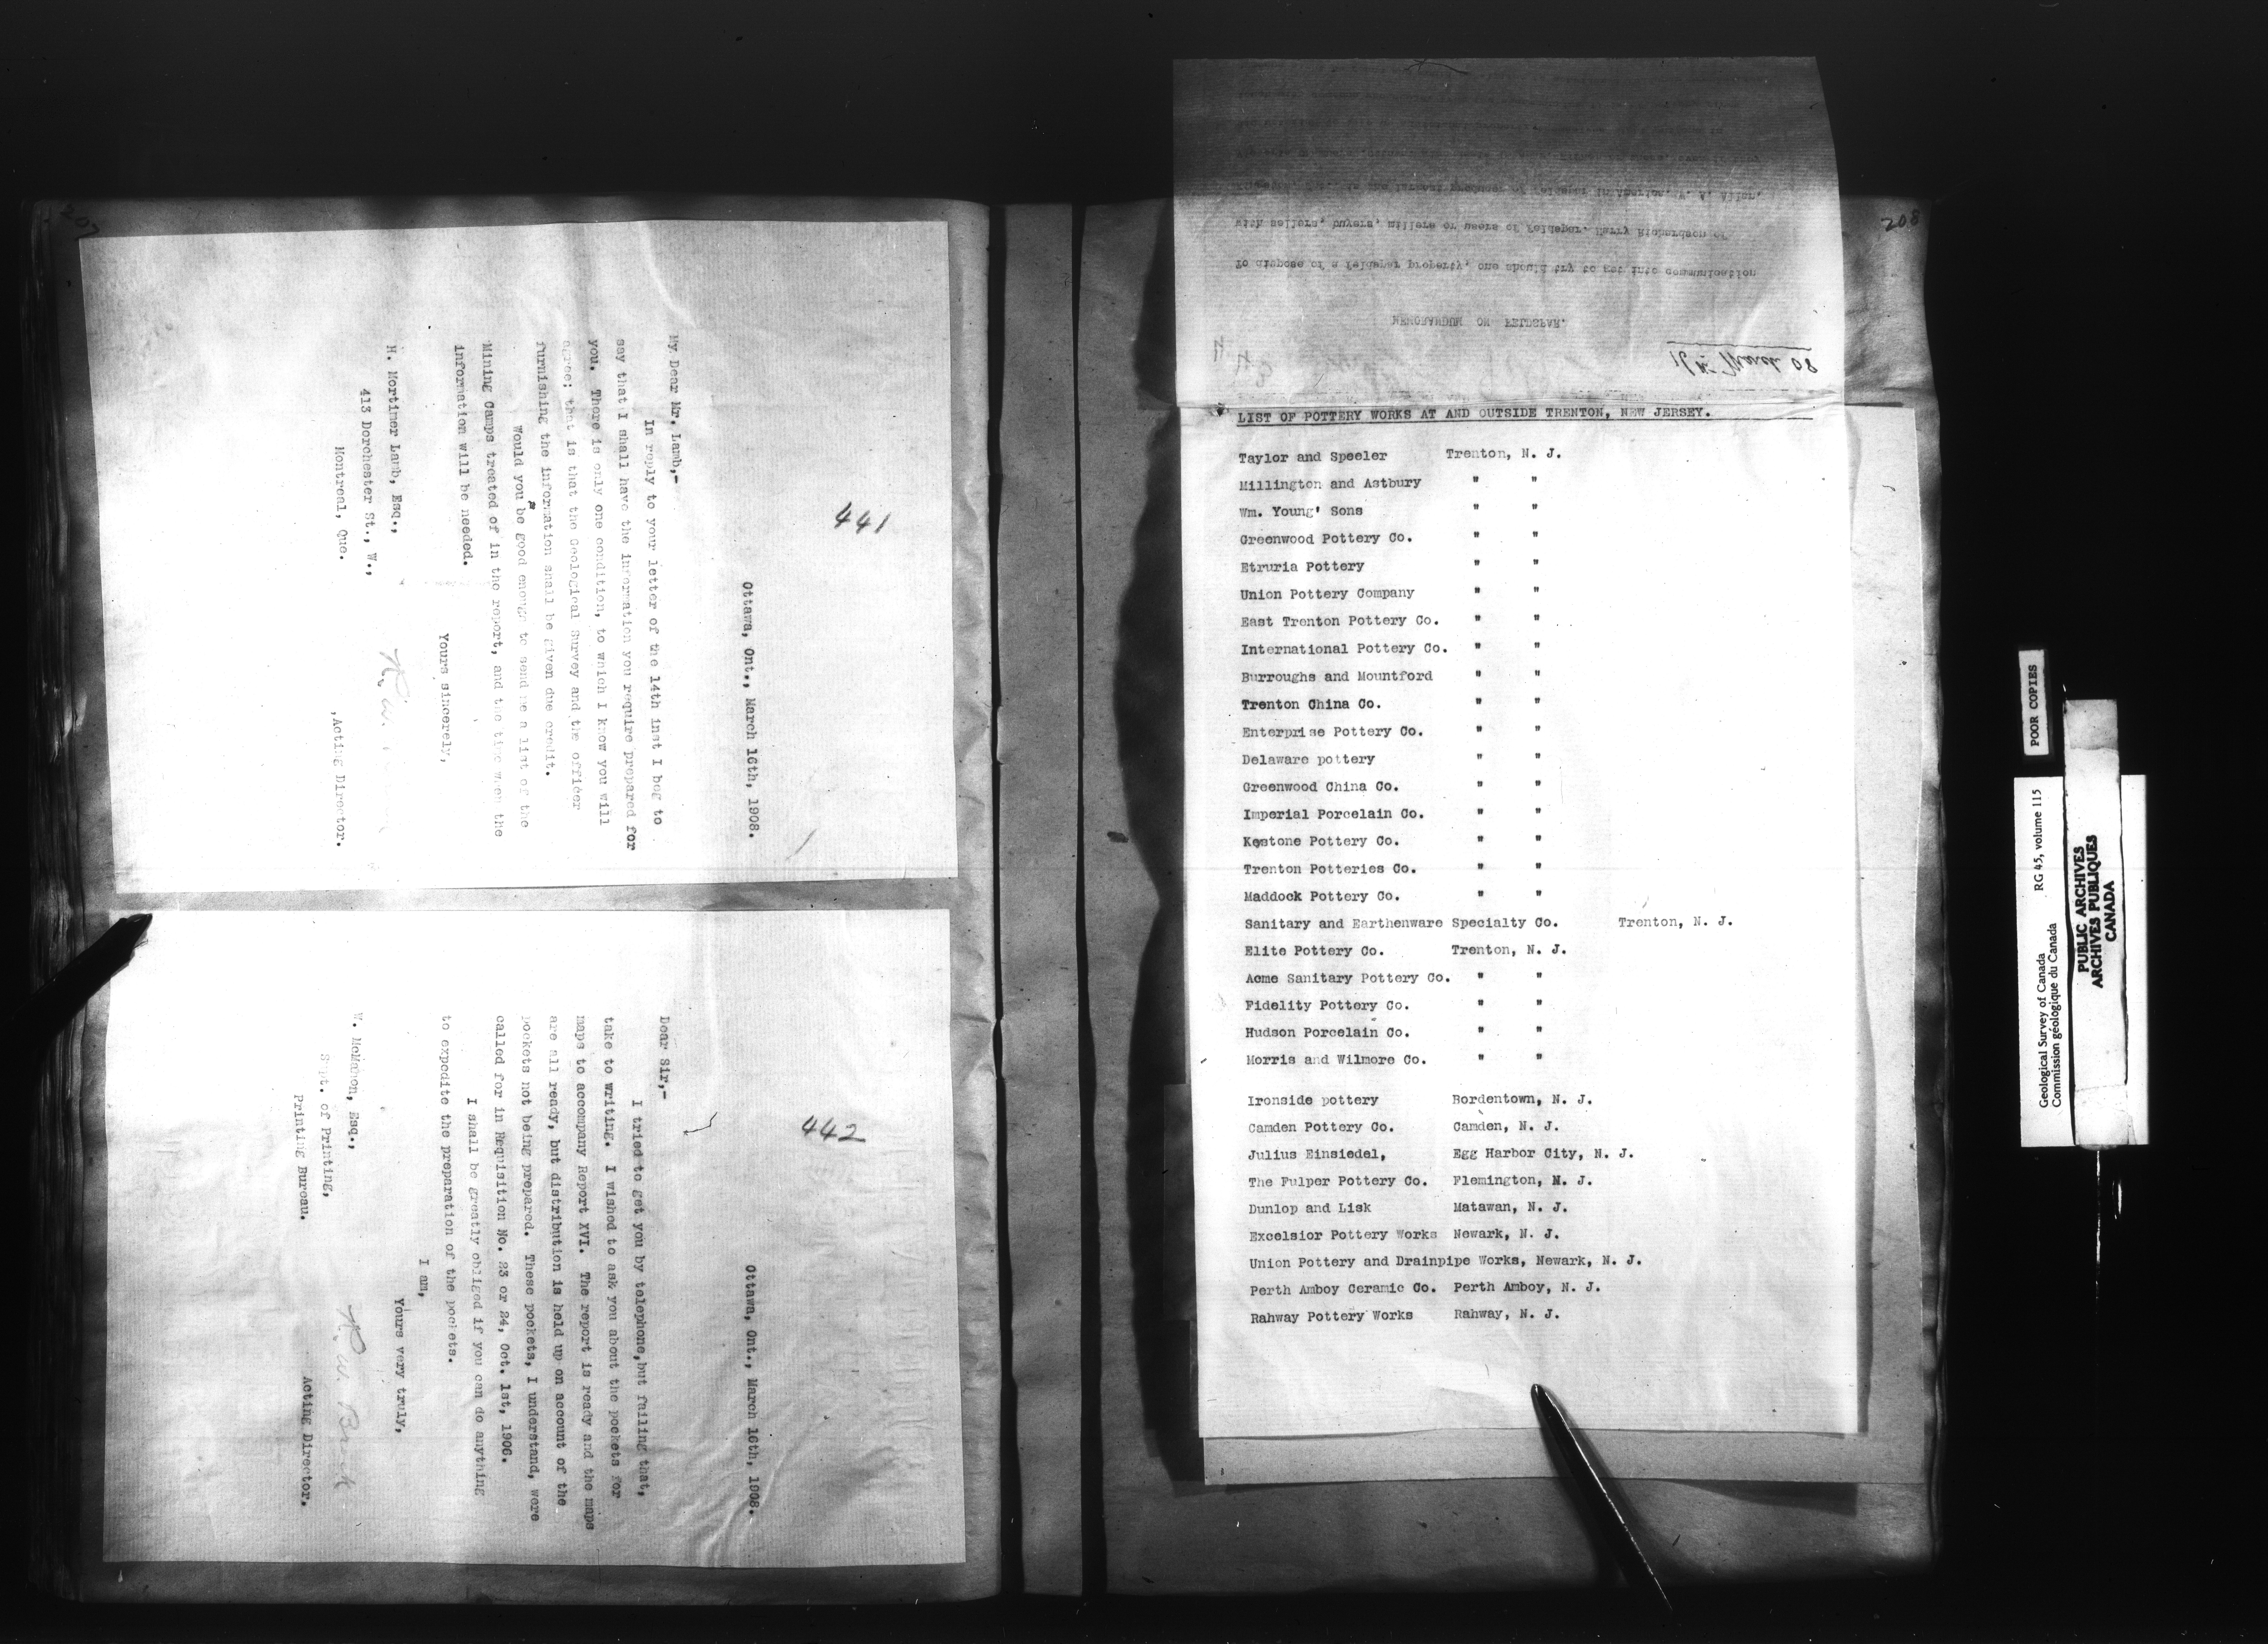 207
441
Ottawa, Ont., March 16th, 1908.
My Dear Mr. Lamb,-
In reply to your letter of the 14th inst I beg to
say that I shall have the information you require prepared for
you. There is only one condition, to which I know you will
agree; that is that the Geological Survey and the officer
furnishing the information shall be given due credit.
Would you be good enough to send me a list of the
Mining Camps treated of in the report, and the time when the
information will be needed.
Yours sincerely,
H. Mortimer Lamb, Esq.,
413 Dorchester St., W.,
Montreal, Que.
R. W.
Acting Director.
442
Ottawa, Ont., March 16th, 1908.
Dear Sir,-
I tried to get you by telephone, but failing that,
take to writing. I wished to ask you about the pockets for
maps to accompany Report XVI. The report is ready and the maps
are all ready, but distribution is held up on account of the
pockets not being prepared. These pockets, I understand, were
called for in Requisition No. 23 or 24, Oct. 1st, 1906.
I shall be greatly obliged if you can do anything
to expedite the preparation of the pockets.
I am,
Yours very truly,
W. McMahon, Esq.,
Supt. of Printing,
Printing Bureau.
R. W. Brock
Acting Director.
208
16th March 08
MEMORANDUM ON FELDSPAR.
To dispose of a feldspar property, one should try to get into communication
with sellers, buyers, millers or users of Feldspar. Harry Richardson of
is the largest producer of feldspar in America.
LIST OF POTTERY WORKS AT AND OUTSIDE TRENTON, NEW JERSEY.
Taylor and Speeler Trenton, N. J.
Millington and Astbury " "
Wm. Young' Sons " "
Greenwood Pottery Co. " "
Etruria Pottery " "
Union Pottery Company " "
East Trenton Pottery Co. " "
International Pottery Co. " "
Burroughs and Mountford " "
Trenton China Co. " "
Enterprise Pottery Co. " "
Delaware pottery " "
Greenwood China Co. " "
Imperial Porcelain Co. " "
Keystone Pottery Co. " "
Trenton Potteries Co. " "
Maddock Pottery Co. " "
Sanitary and Earthenware Specialty Co. Trenton, N. J.
Elite Pottery Co. Trenton, N. J.
Acme Sanitary Pottery Co. " "
Fidelity Pottery Co. " "
Hudson Porcelain Co. " "
Morris and Wilmore Co. " "
Ironside pottery Bordentown, N. J.
Camden Pottery Co. Camden, N. J.
Julius Einsiedel, Egg Harbor City, N. J.
The Fulper Pottery Co. Flemington, N. J.
Dunlop and Lisk Matawan, N. J.
Excelsior Pottery Works Newark, N. J.
Union Pottery and Drainpipe Works, Newark, N. J.
Perth Amboy Ceramic Co. Perth Amboy, N. J.
Rahway Pottery Works Rahway, N. J.
POOR COPIES
Geological Survey of Canada RG 45, volume 115
Commission géologique du Canada
PUBLIC ARCHIVES
ARCHIVES PUBLIQUES
CANADA